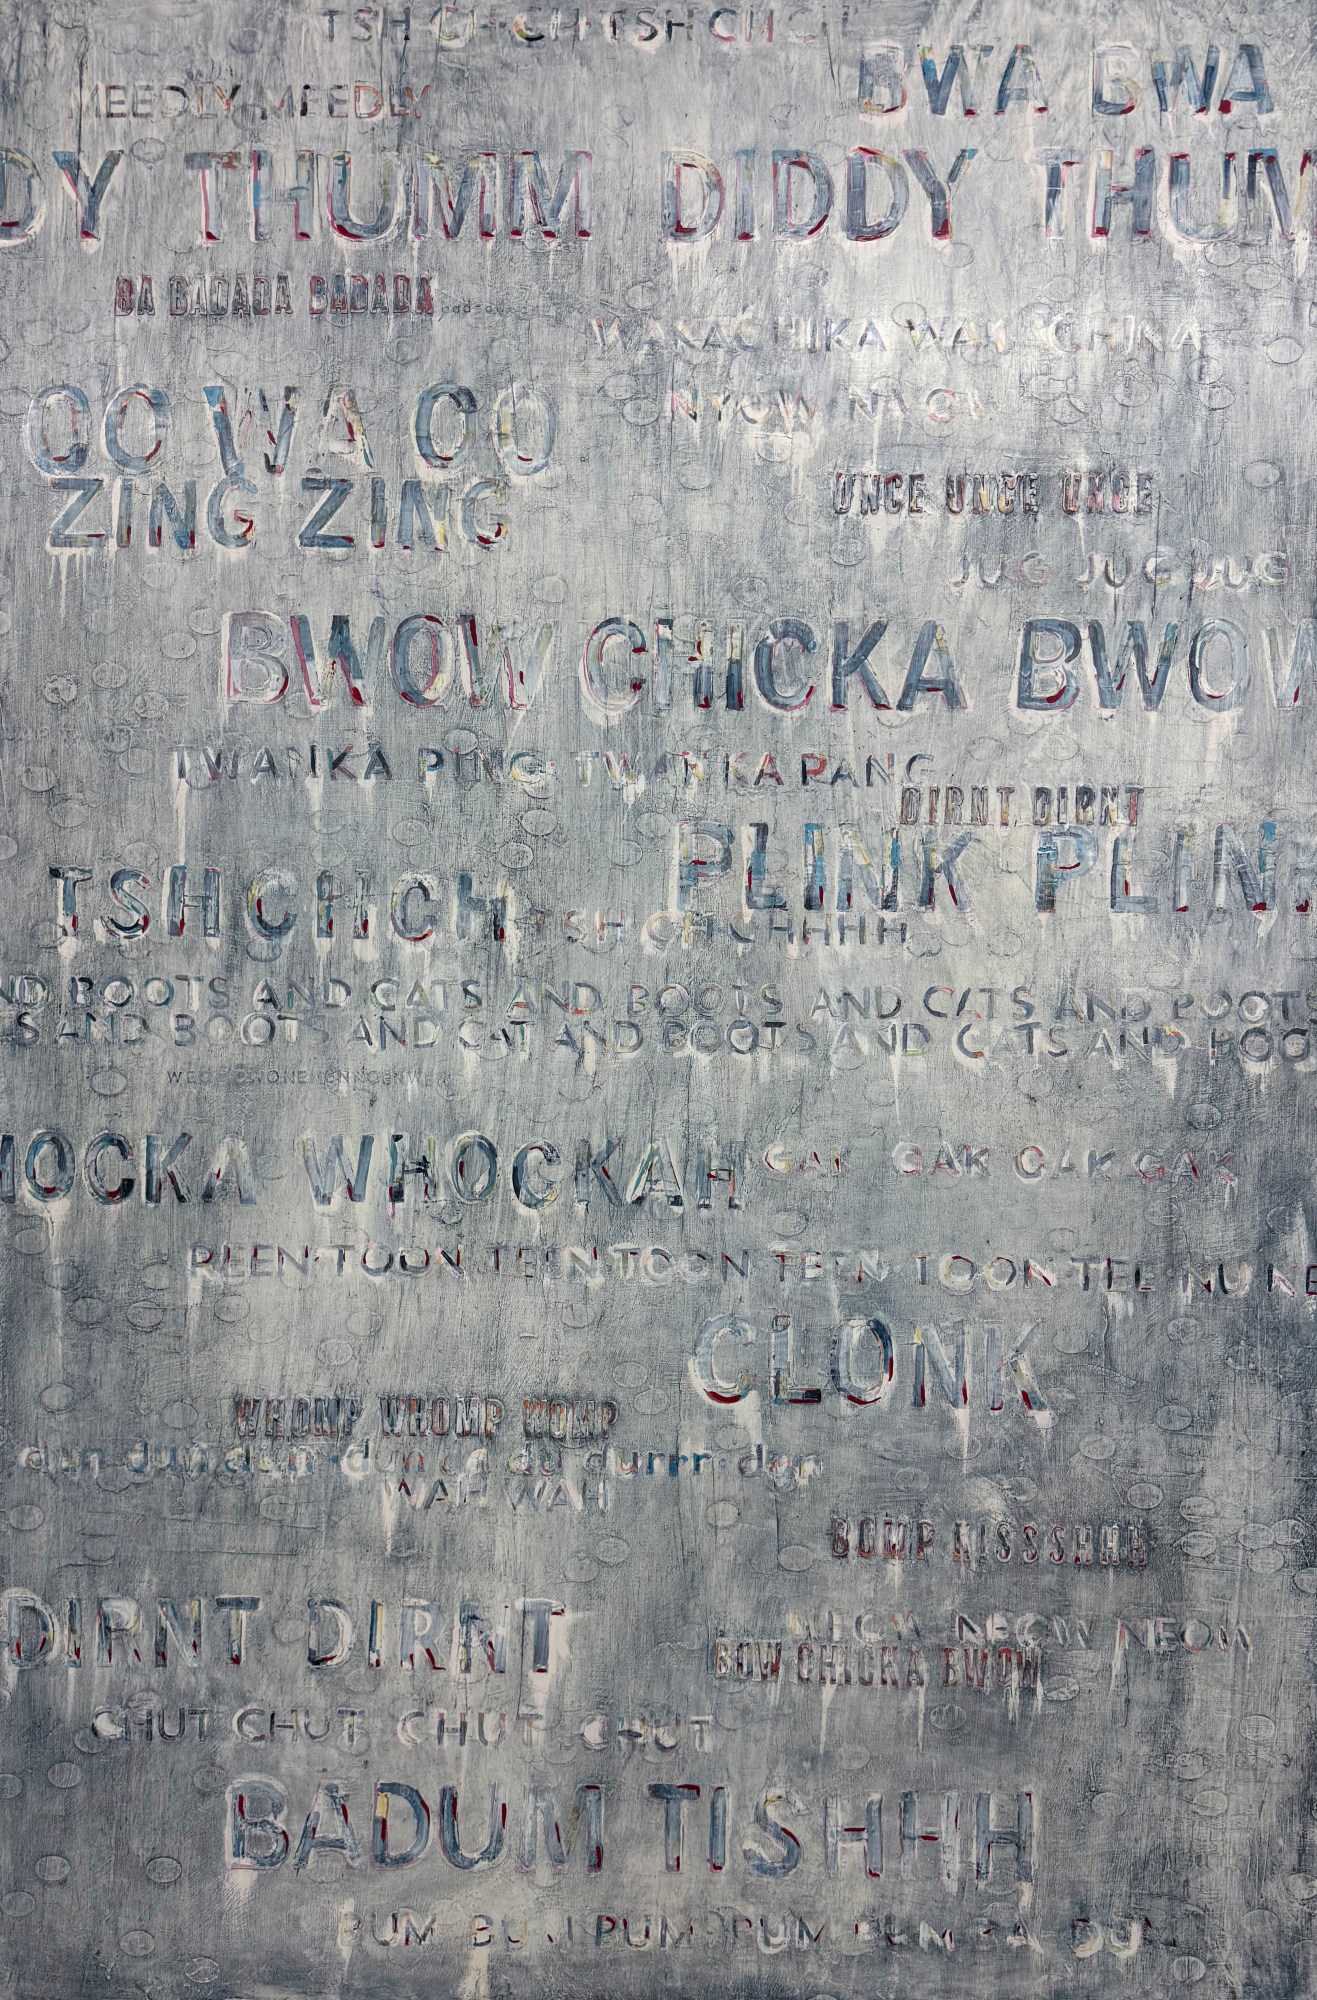 TSH CH CH TSH CHCH
BWA BWA
MEEDLY MEEDLY
DY THUMM DIDDY THUM
BA BADADA BADADA
WAKACHIKA WAKACHIKA
OO WA OO
NYOW
ZING ZING
UNCE UNCE UNCE
JUG JUG JUG
BWOW CHICKA BWOW
TWANKA PING TWANKA PANG
DIRNT DIRNT
PLINK PLINK
TSH CHCH
TSH CH CHHHHH
ND BOOTS AND CATS AND BOOTS AND CATS AND BOOTS
S AND BOOTS AND CAT AND BOOTS AND CATS AND BOO
HOCKA WHOCKAH
GAK GAK GAK GAK
REEN TOON TEEN TOON TEEN TOON TEE NU NE
CLONK
WHOMP WHOMP WOMP
dun dun dun dun durrr
WAH WAH
BOMP KISSSHHH
DIRNT DIRNT
NEOW NEOW
BOW CHICKA BWOW
CHUT CHUT CHUT CHUT
BADUM TISHHH
BUM PUM PUM BA DUM